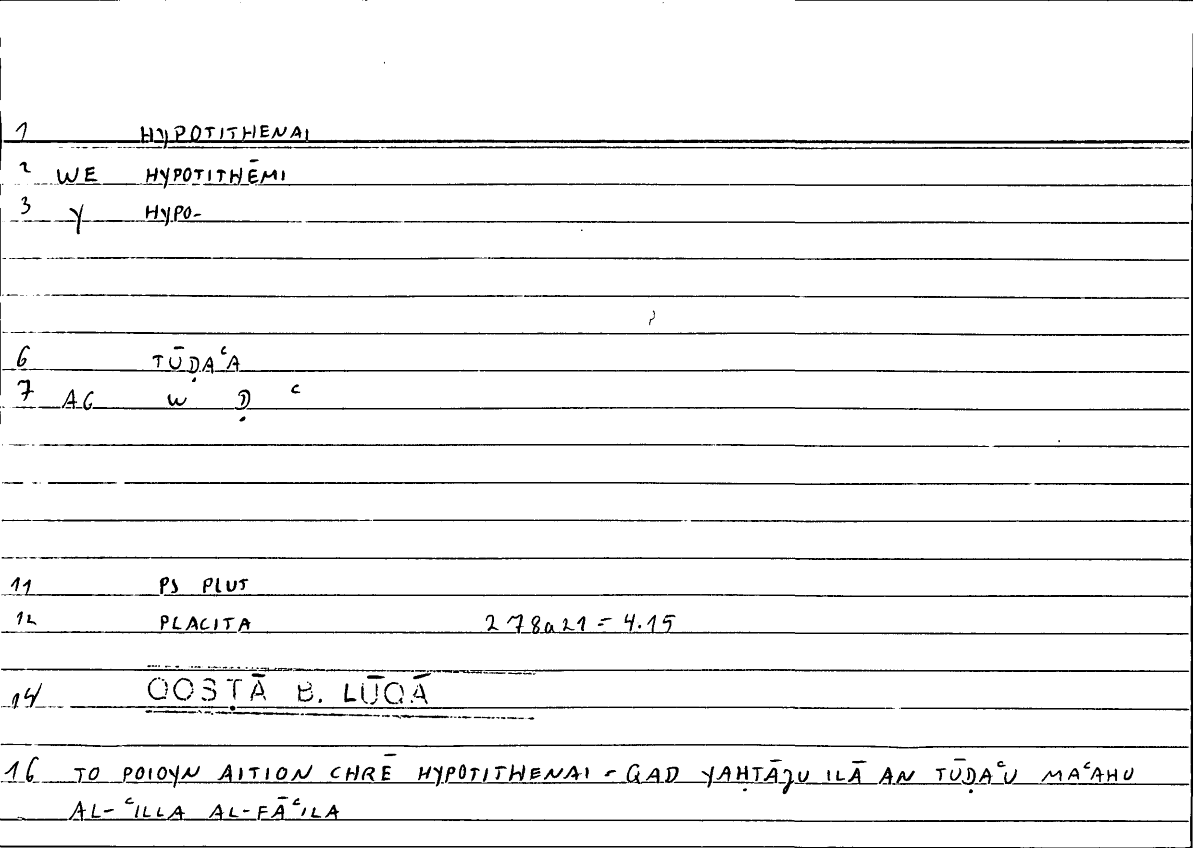 1 HYPOTITHENAI
2 WE HYPOTITHĒMI
3 Y HYPO-
6 TŪḌAʿA
7 AG W Ḍ ʿ
11 PS PLUT
12 PLACITA 278a21 = 4.15
14 QOSṬĀ B. LŪQĀ
16 TO POIOYN AITION CHRĒ HYPOTITHENAI - QAD YAḤTĀJU ILĀ AN TŪḌAʿU MAʿAHU
AL-ʿILLA AL-FĀʿILA